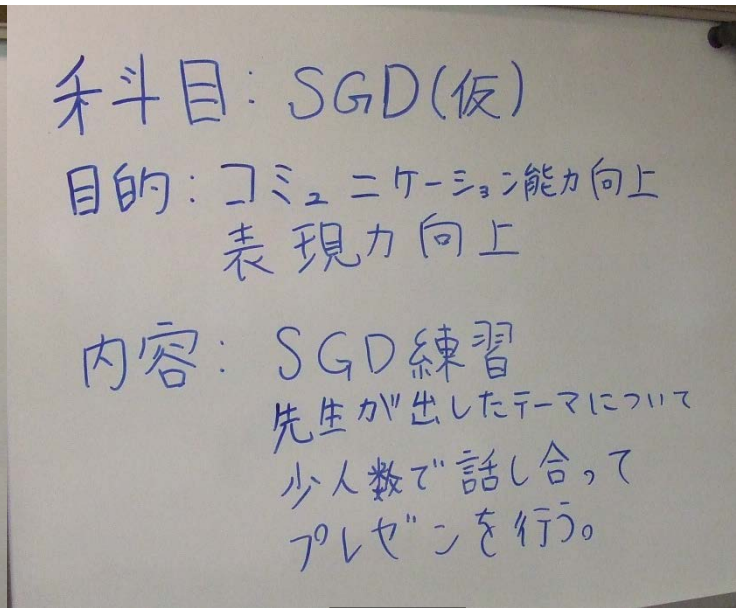 科目: SGD(仮)
目的: コミュニケーション能力向上
表現力向上
内容: SGD練習
先生が出したテーマについて
少人数で話し合って
プレゼンを行う。